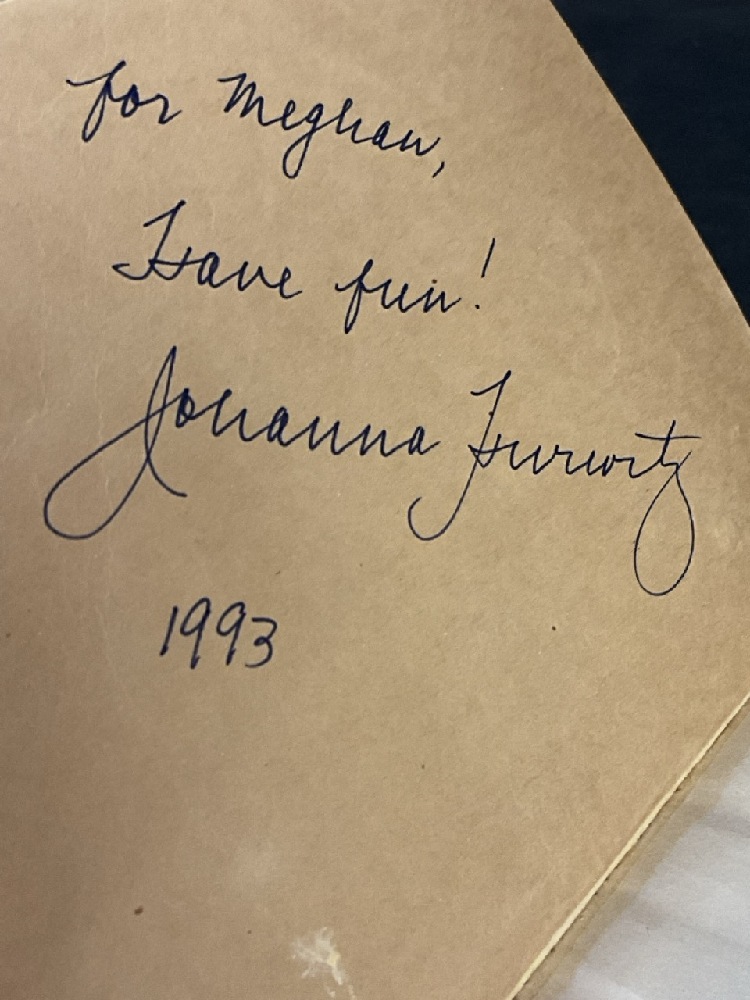 for Meghan,
Have fun!
Johanna Hurwitz
1993